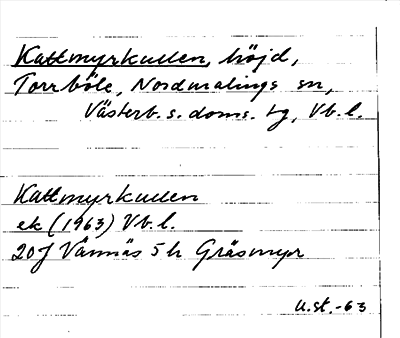 Kattmyrkullen, höjd,
Torrböle, Nordmalings sn,
Västerb. s. doms. tg, Vb. l.
Kattmyrkullen
ek (1963) Vb. l.
20J Vännäs 5h Gräsmyr
U.st. -63